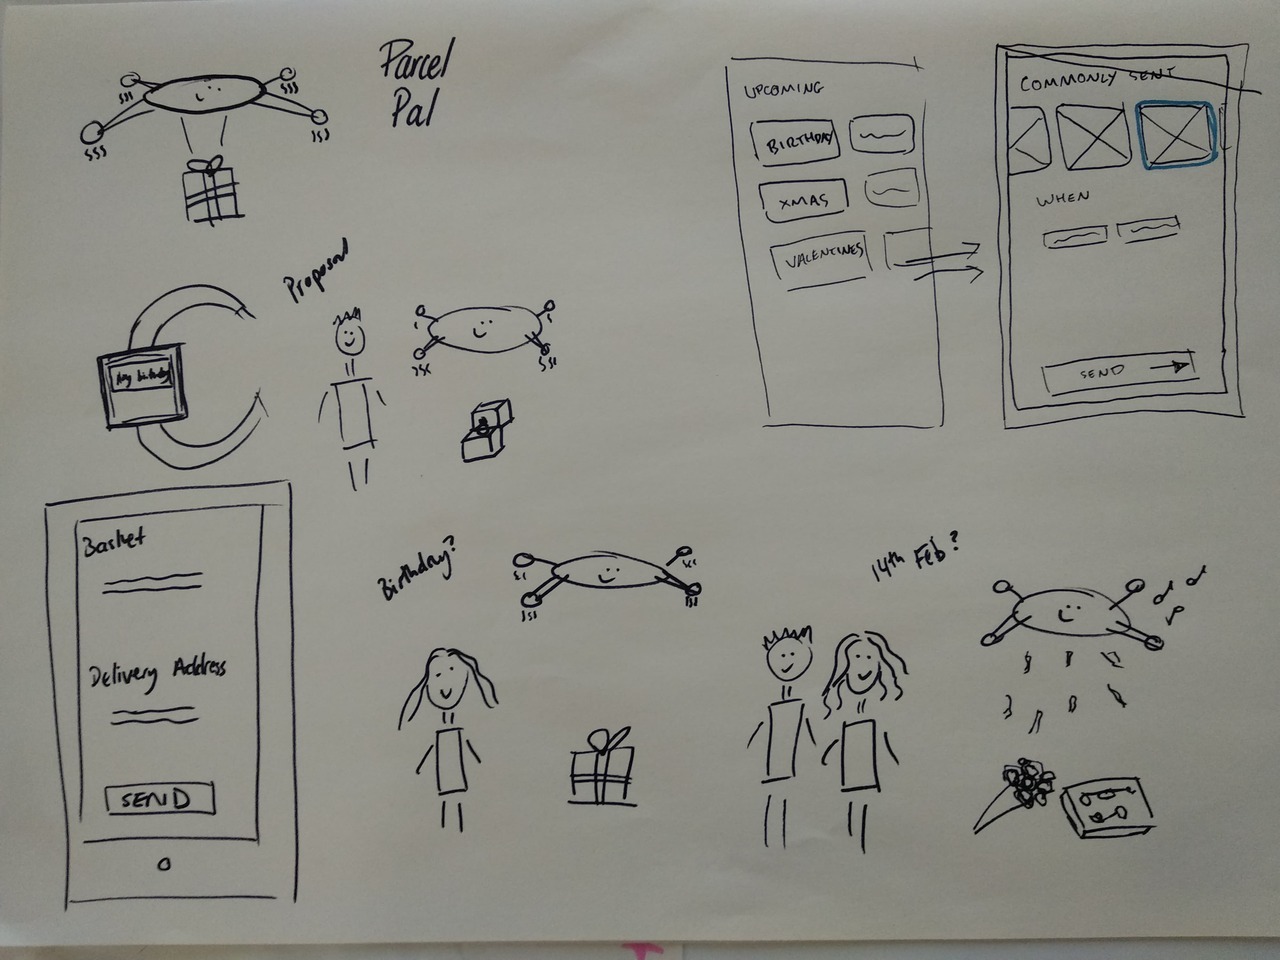 Parcel
Pal
UPCOMING
BIRTHDAY
XMAS
VALENTINES
COMMONLY SENT
WHEN
SEND
Proposal
birthday
Basket
Delivery Address
SEND
Birthday?
14th Feb?